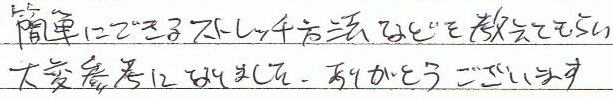 簡単にできるストレッチ方法などを教えてもらい
大変参考になりました。ありがとうございます